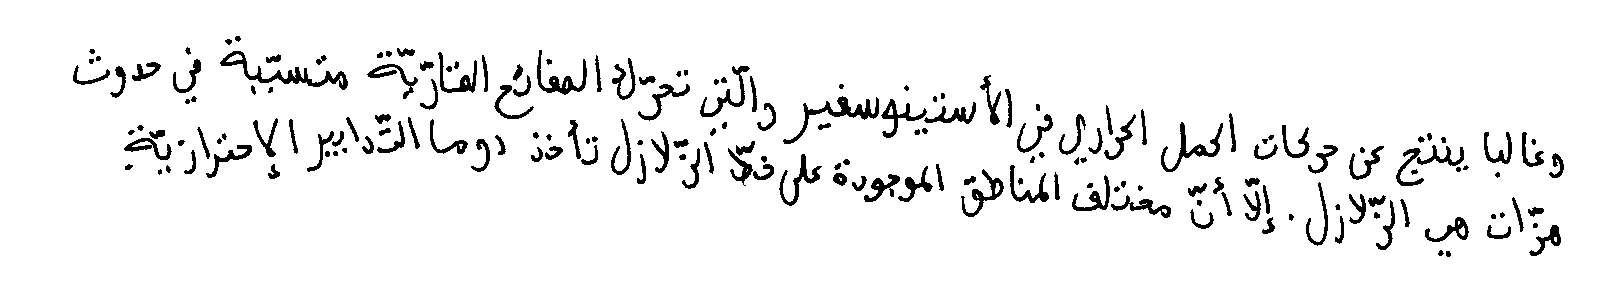 وغالبا ينتج عن حركات الحمل الحراري في الأستينوسفير والّتي تحرّك الصفائح القارّيّة متسبّبة في حدوث
هزّات هي الزّلازل. إلّا أنّ مختلف المناطق الموجودة على خطّ الزّلازل تأخذ دوما التّدابير الإحترازيّة